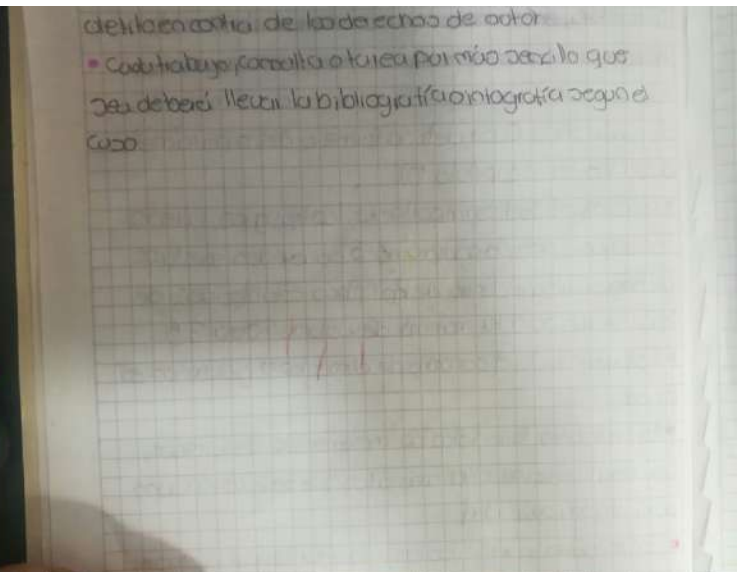 delito en contra de los derechos de autor
• Cada trabajo, consulta o tarea por más sencilo que
sea deberá llevar la bibliografía o infografía segun el
caso.